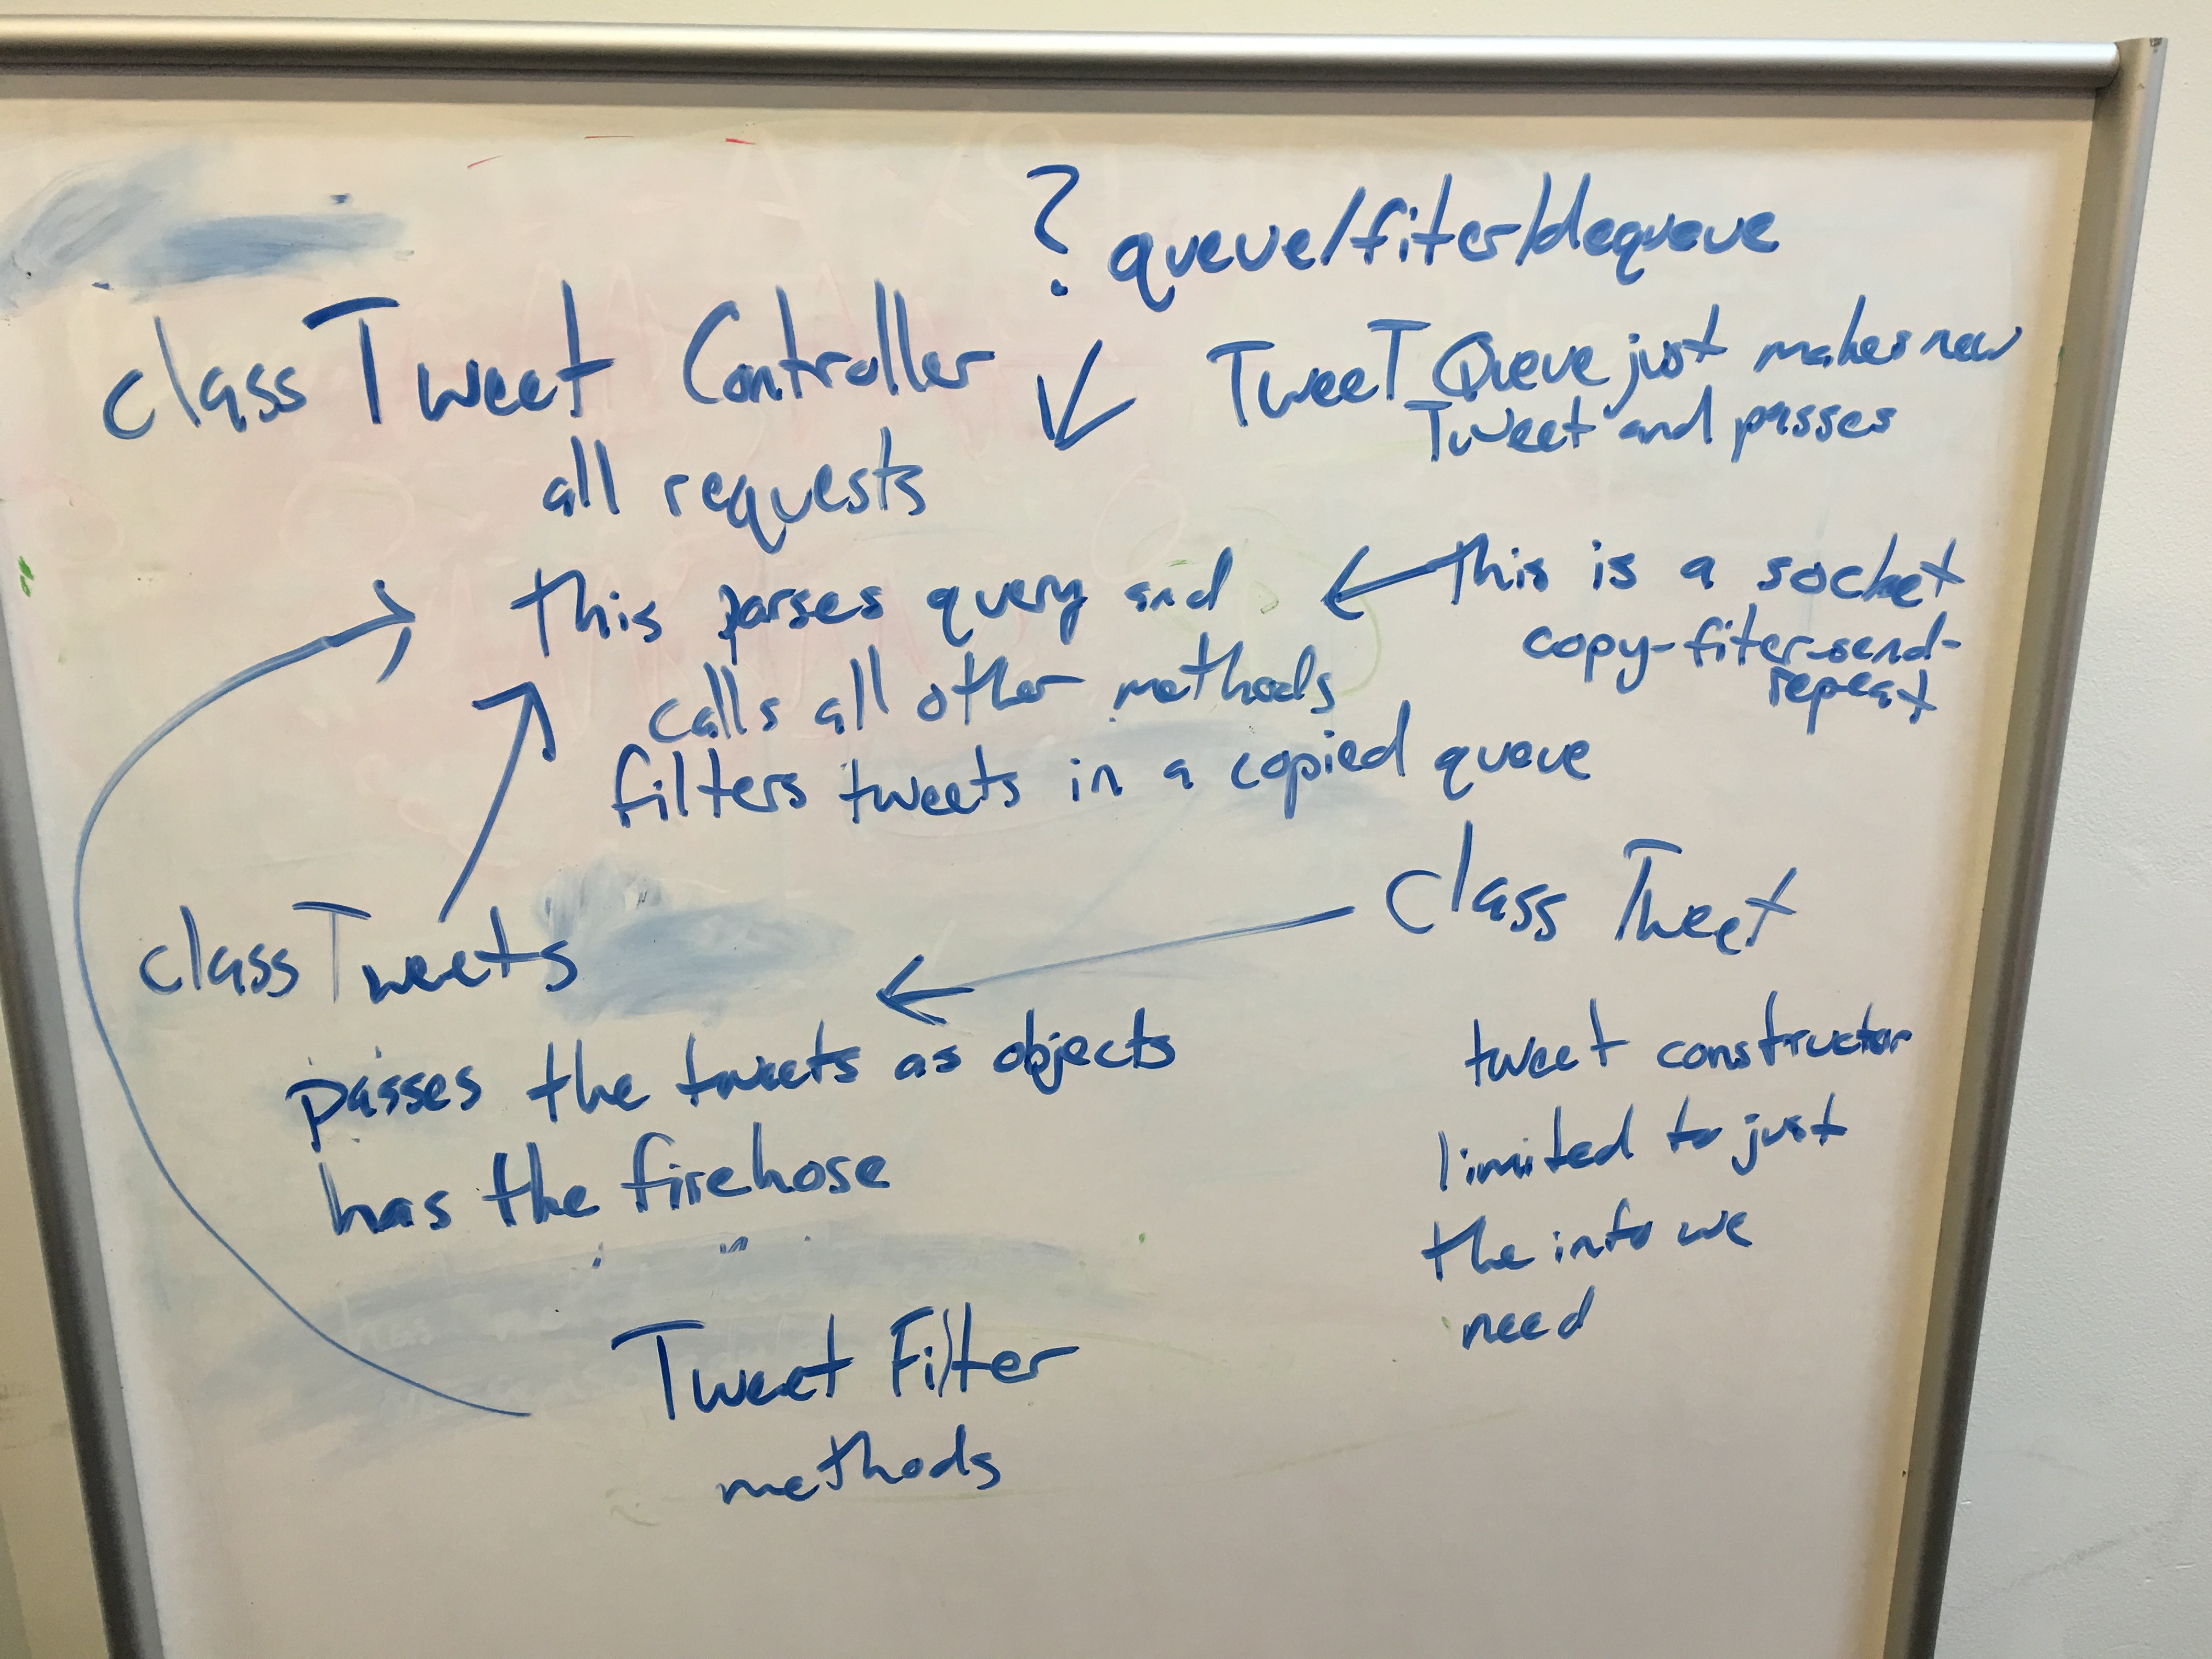 ? queue/fiter/dequeue
class Tweet Controller
TweeT Queue just makes new
Tweet and passes
all requests
this parses query and
calls all other methods
filters tweets in a copied queue
this is a socket
copy-fiter-send-
repeat
class Tweets
passes the tweets as objects
has the firehose
class Tweet
tweet constructor
limited to just
the info we
need
Tweet Filter
methods